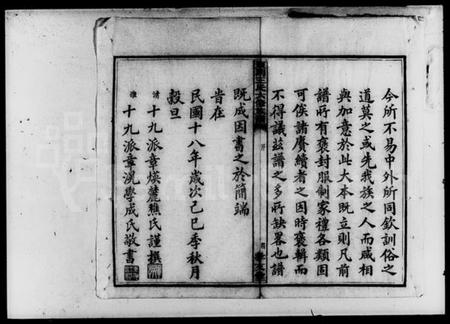 今所不易中外所同欽訓俗之
道莫之或先我族之人而咸相
與加意於此大本既立則凡前
譜所有褒封服制家禮各類固
可俟諸賡續者之因時褒輯而
不得議茲譜之多所缺畧也譜
既成因書之於簡端
旹在
民國十八年歲次己巳季秋月
穀旦
清 十九派章煐麓樵氏謹撰
準 十九派章混學成氏敬書